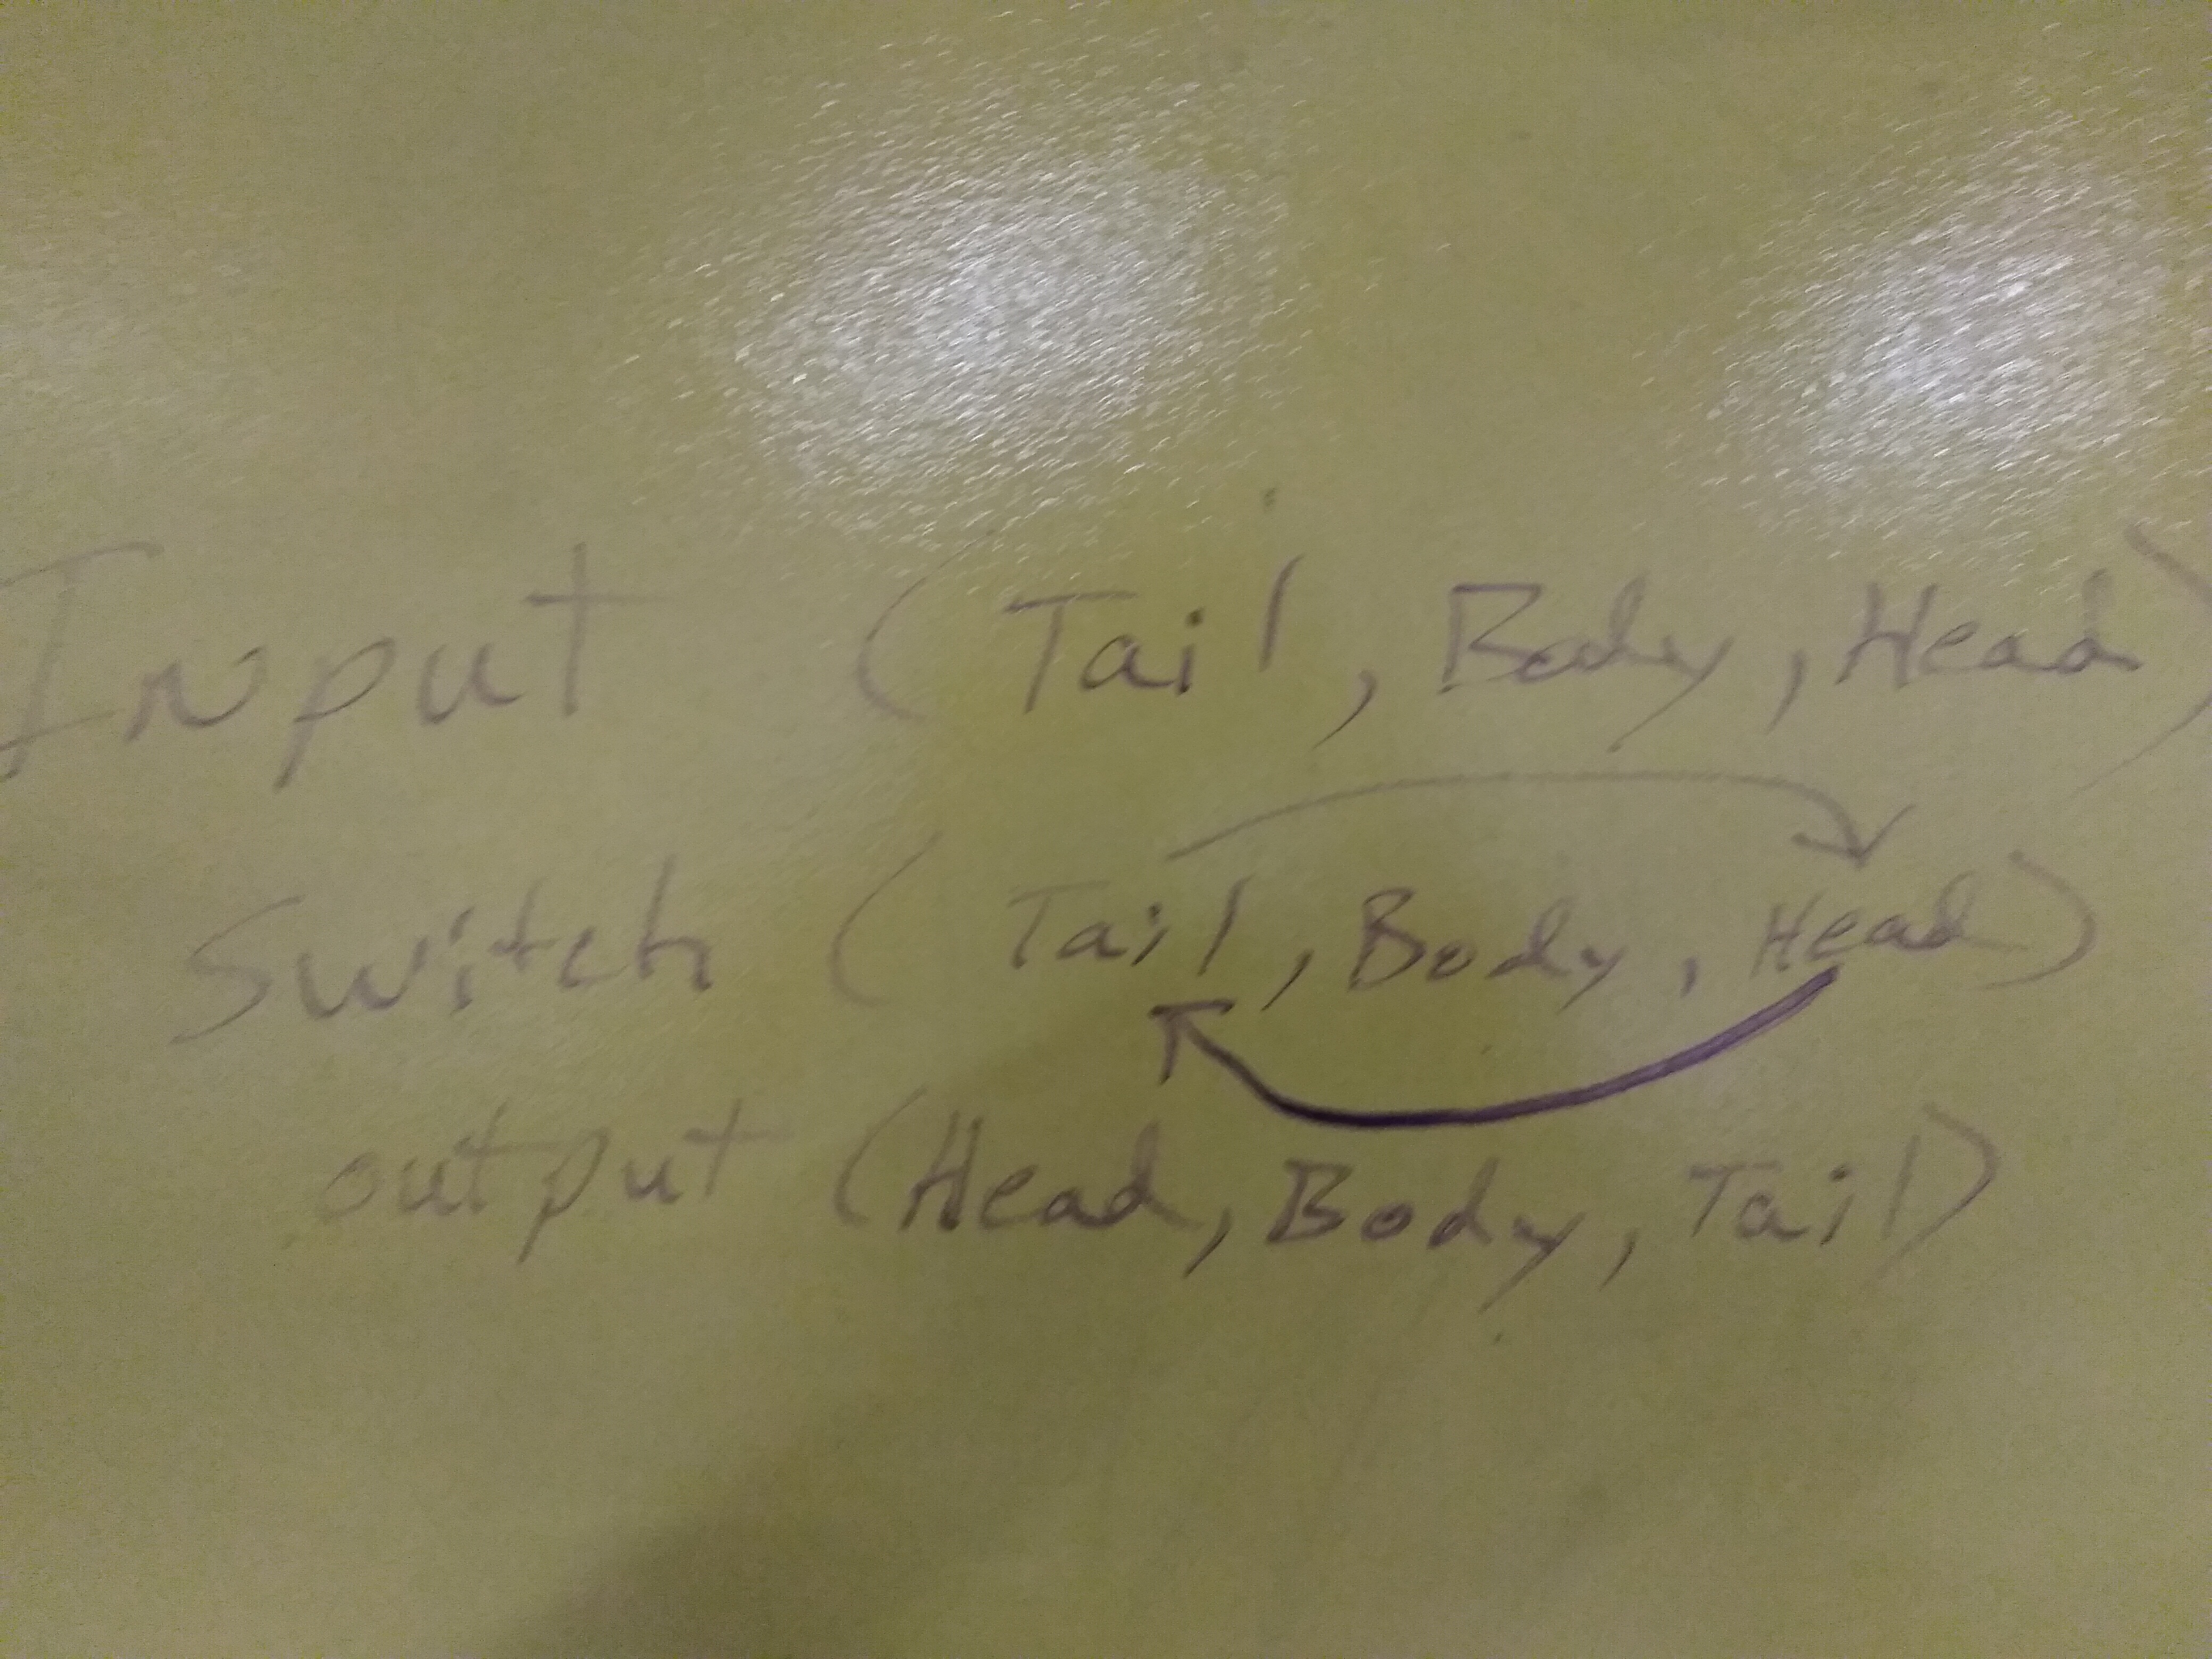 Input (Tail, Body, Head)
Switch (Tail, Body, Head)
output (Head, Body, Tail)